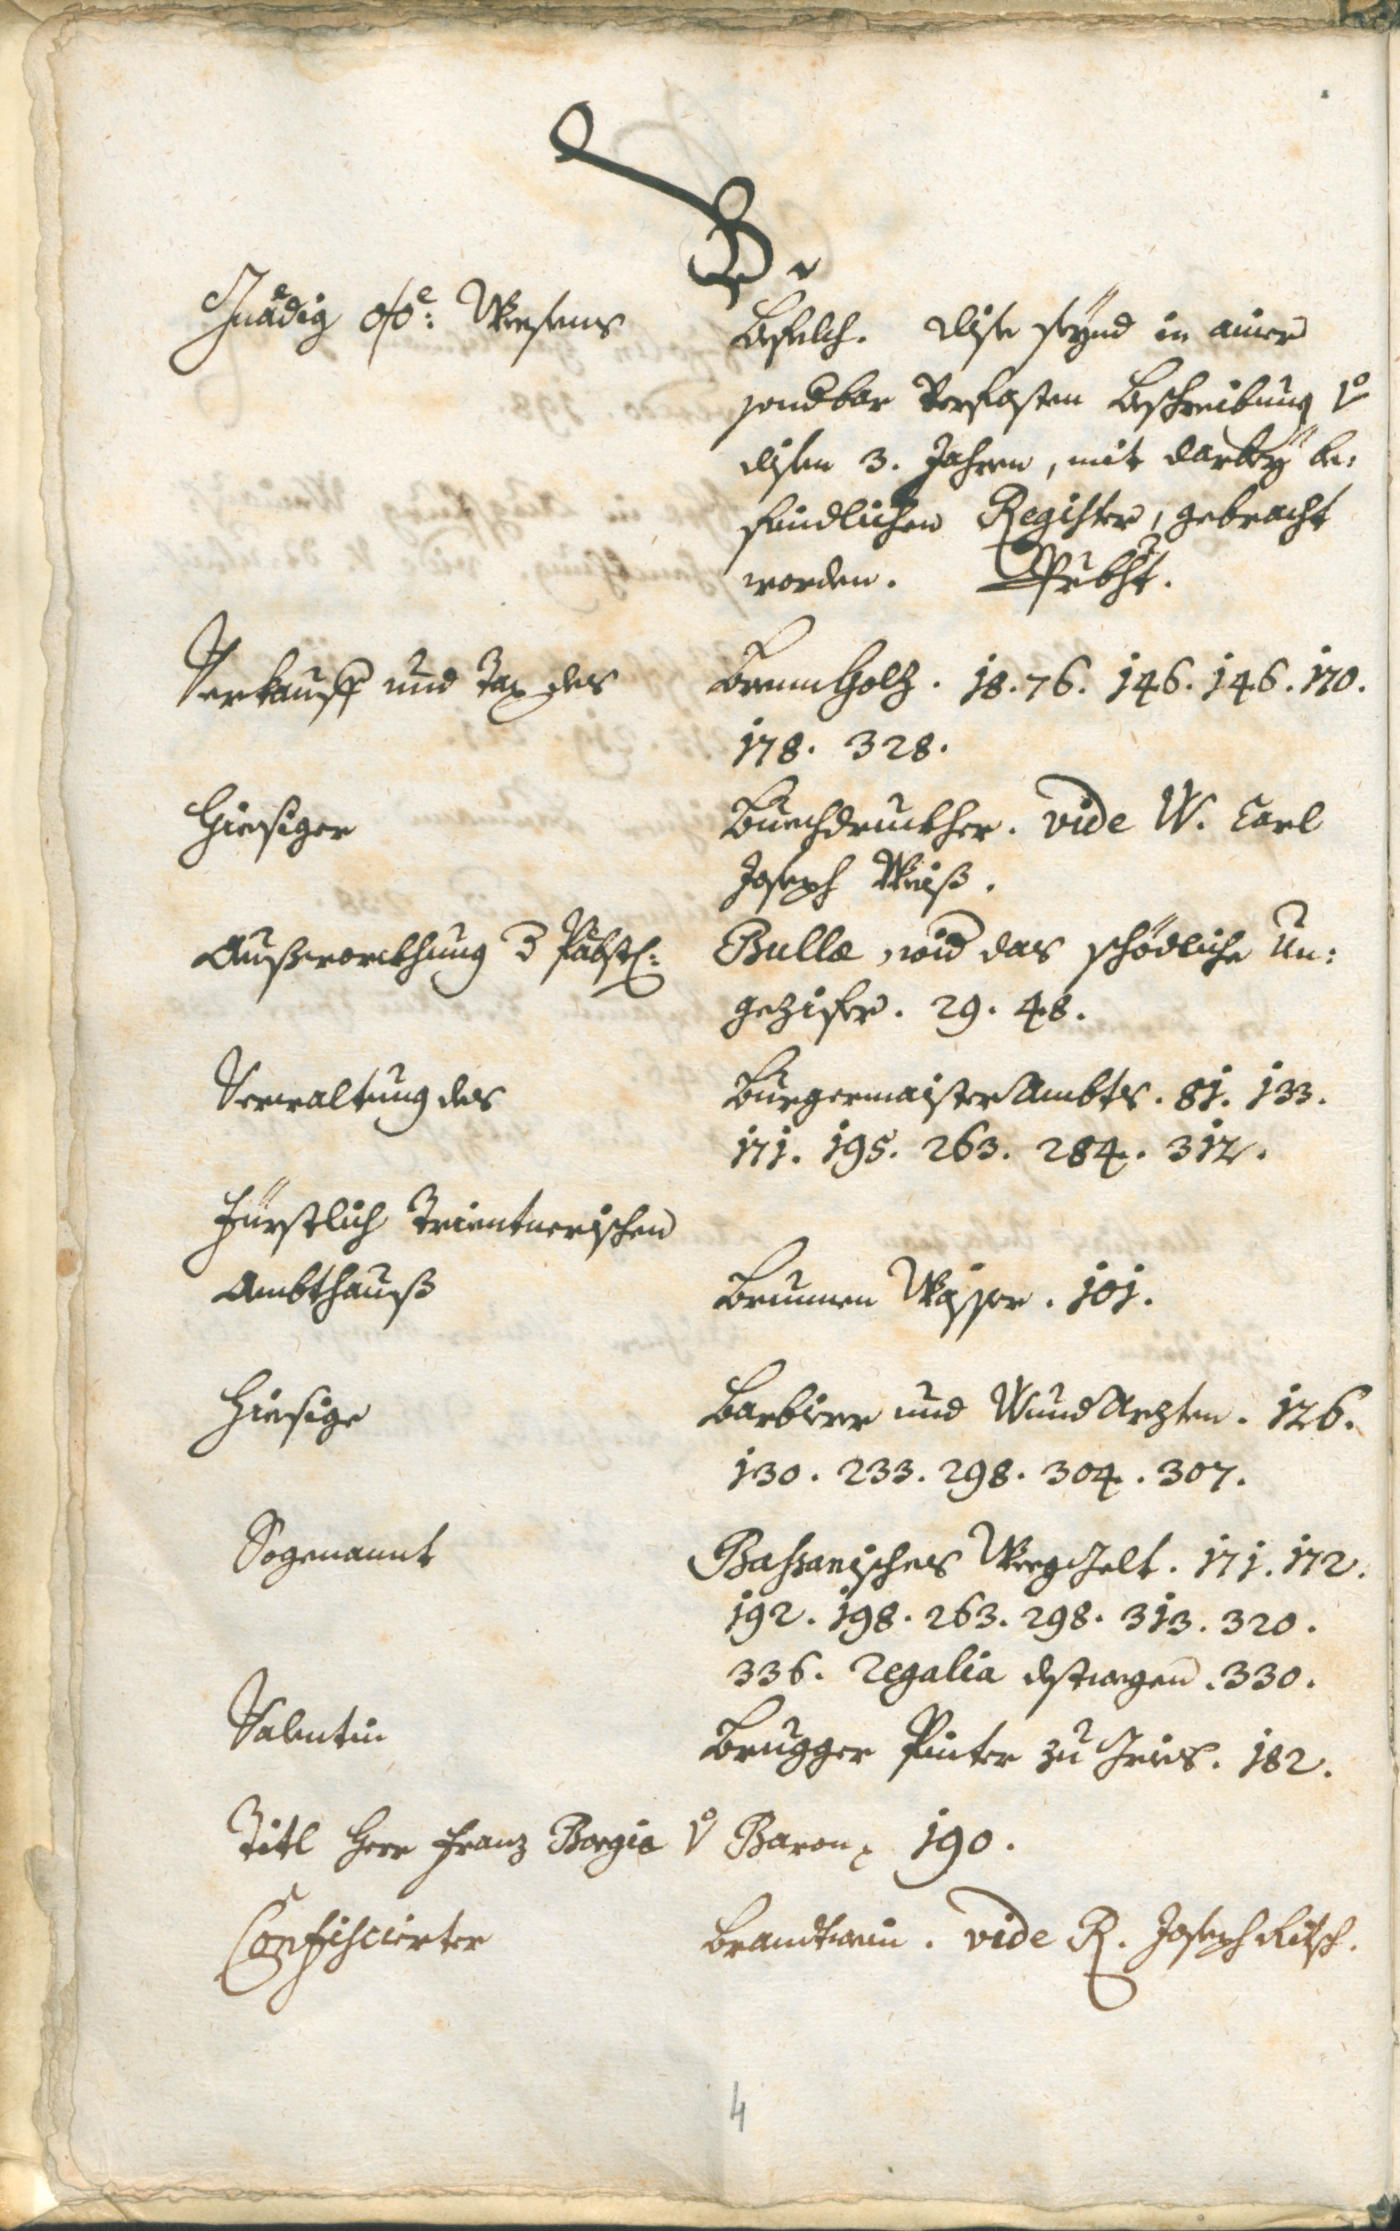 B.
Gnädig o/öe: Weesens
Befelch. Dise seynd in ainer
sonderbar Verfasten Beschreibung v°
disen 3. Jahren, mit darbey be:
findlichen Register, gebracht
worden.
Verkauff und Tax des
Brennholz. 18. 76. 146. 146. 170.
178. 328.
Hiesiger
Buechdruckher. vide W. Carl
Joseph Weiß.
Außwürckhung d Päbstl:
Bulla, wid das schödliche Un:
gezifer. 29. 48.
Verwaltung des
Burgermaister Ambts. 81. 133.
171. 195. 263. 284. 312.
Fürstlich Trientnerischen
Ambthauß
Brunnen Wasser. 101.
Hiesige
Barbierer und Wund Arzten. 126.
130. 233. 298. 304. 307.
Sogenannt
Bassanisches Weeg Gelt. 171. 172.
192. 198. 263. 298. 313. 320.
336. Regalia destwegen. 330.
Valentin
Brugger Pinter zu Gries. 182.
Titl Herr Franz Borgia v° Baron 190.
Confiscierter
Brandtwein. vide R. Joseph Ritsch.
4